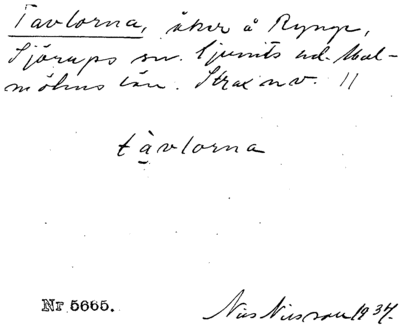 Tavlorna, åker å Rynge,
Sjörups sn. Ljunits hd. Mal-
möhus län. Strax n v. 11
tavlorna
Nr 5665.
Nils Nilsson 1934.